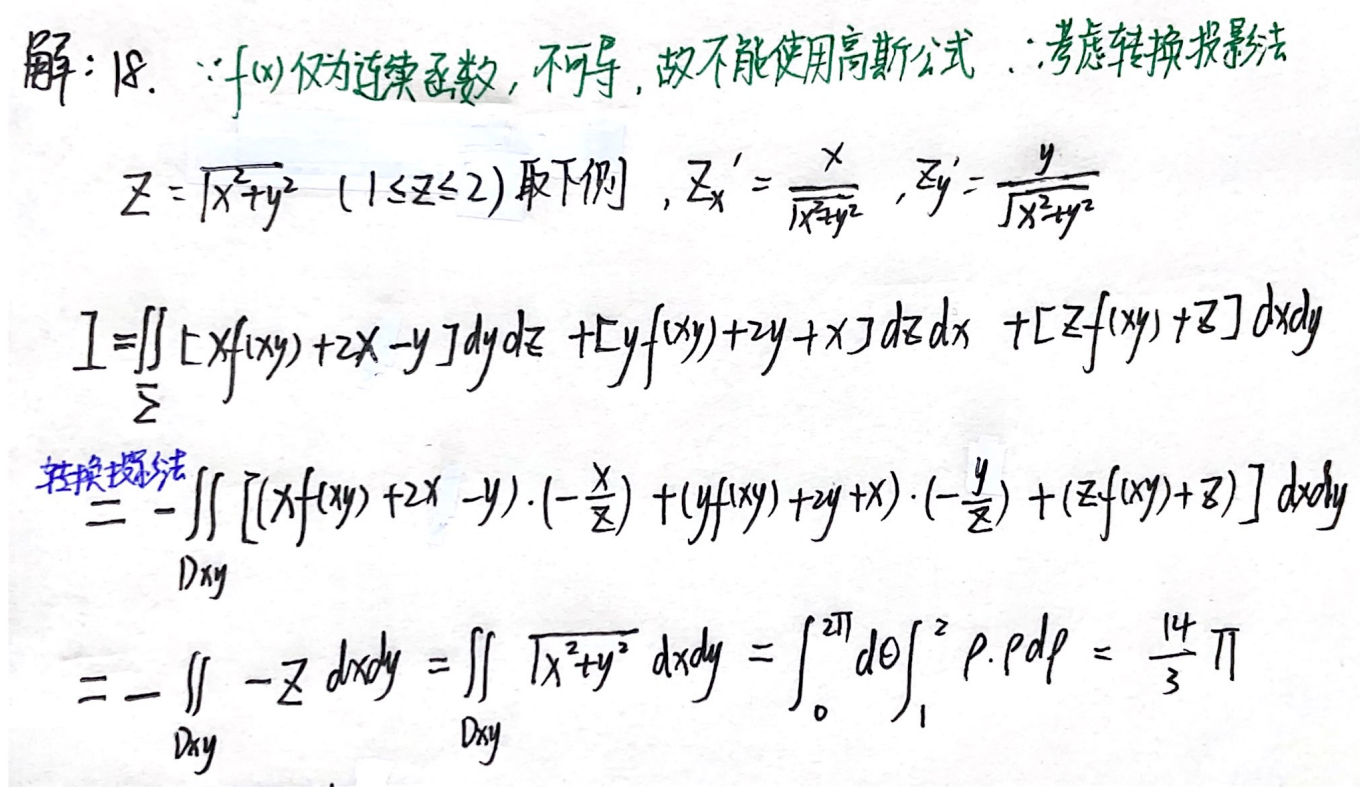 解：18. ∵f(x)仅为连续函数，不可导，故不能使用高斯公式 ∴考虑转换投影法
Z = √(x²+y²) (1≤Z≤2)取下侧，Zx' = x/√(x²+y²)，Zy' = y/√(x²+y²)
I = ∬_Σ [xf(xy)+2x-y]dydz +[yf(xy)+2y+x]dzdx +[zf(xy)+z]dxdy
转换投影法
= -∬_Dxy [(xf(xy)+2x-y)·(-x/z) +(yf(xy)+2y+x)·(-y/z) +(zf(xy)+z)] dxdy
= -∬_Dxy -z dxdy = ∬_Dxy √(x²+y²) dxdy = ∫_0^2π dθ ∫_1^2 ρ·ρdρ = 14/3 π